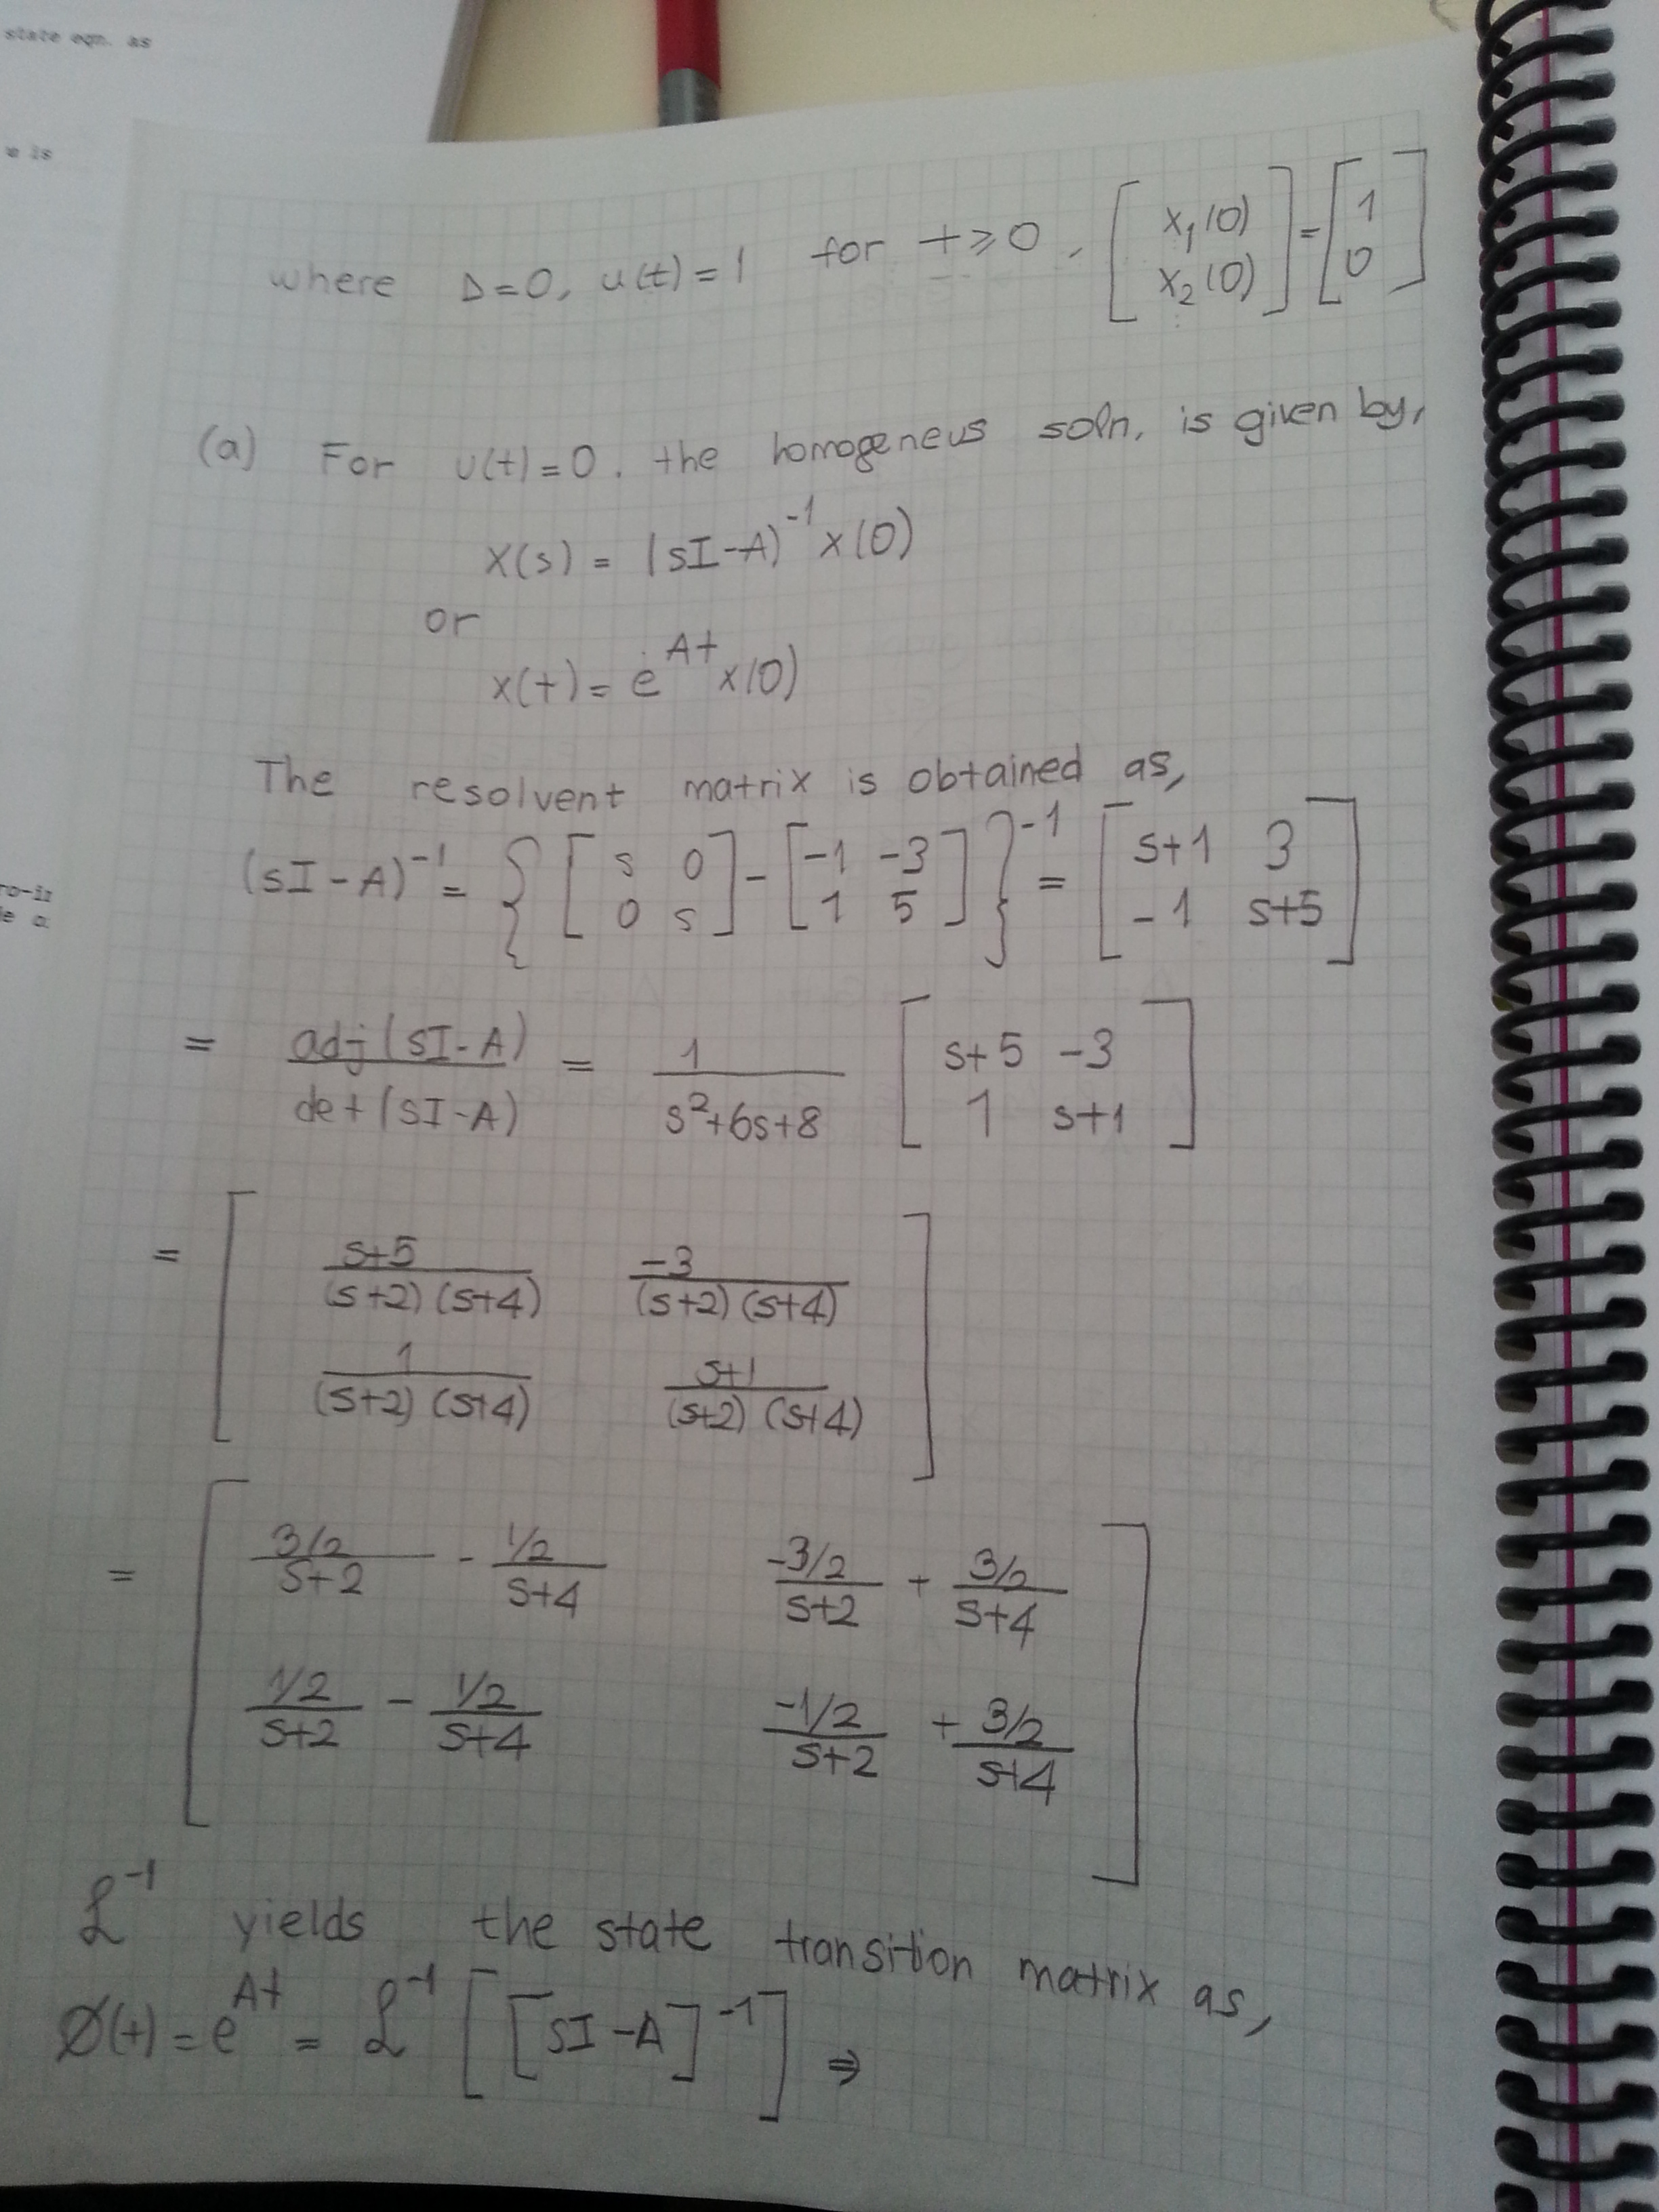 state eqn. as
e is
ro-i
le a
where D=0, u(t)=1 for t≥0, [x₁(0) x₂(0)] = [1 0]
(a) For u(t)=0. the homogeneus soln. is given by,
X(s) = (sI-A)⁻¹ x(0)
or
x(t) = e^{At} x(0)
The resolvent matrix is obtained as,
(sI-A)⁻¹ = { [s 0; 0 s] - [-1 -3; 1 5] }⁻¹ = [s+1 3; -1 s+5]
= adj(sI-A)/det(sI-A) = 1/(s²+6s+8) [s+5 -3; 1 s+1]
= [(s+5)/((s+2)(s+4)) -3/((s+2)(s+4)); 1/((s+2)(s+4)) (s+1)/((s+2)(s+4))]
= [(3/2)/(s+2) - (1/2)/(s+4) (-3/2)/(s+2) + (3/2)/(s+4); (1/2)/(s+2) - (1/2)/(s+4) (-1/2)/(s+2) + (3/2)/(s+4)]
ℒ⁻¹ yields the state transition matrix as,
Ø(t) = e^{At} = ℒ⁻¹ [[sI-A]⁻¹] ⇒